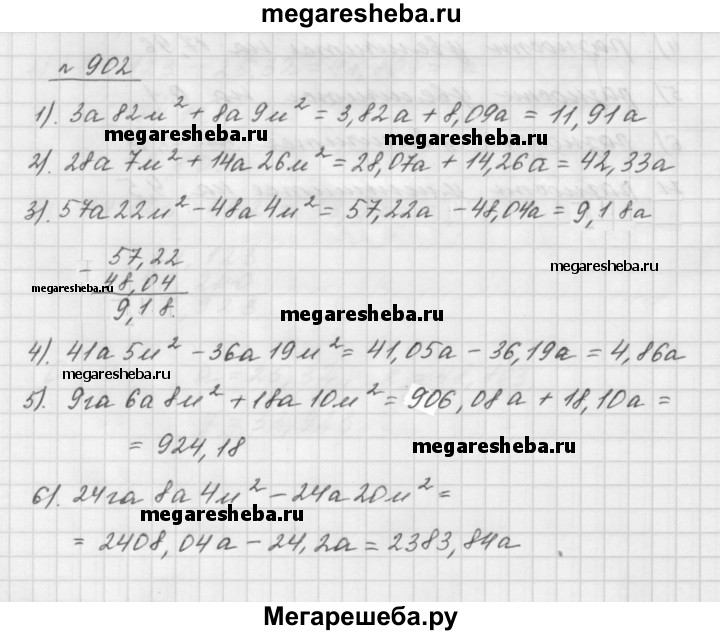 megaresheba.ru
№ 902
1). 3а 82м² + 8а 9м² = 3,82а + 8,09а = 11,91а
megaresheba.ru megaresheba.ru
2). 28а 7м² + 14а 26м² = 28,07а + 14,26а = 42,33а
3). 57а 22м² - 48а 4м² = 57,22а - 48,04а = 9,18а
- 57,22
megaresheba.ru
48,04
megaresheba.ru
9,18.
megaresheba.ru
4). 41а 5м² - 36а 19м² = 41,05а - 36,19а = 4,86а
megaresheba.ru
5). 9га 6а 8м² + 18а 10м² = 906,08а + 18,10а =
= 924,18
megaresheba.ru
6). 24га 8а 4м² - 24а 20м² =
megaresheba.ru
= 2408,04а - 24,2а = 2383,84а
Мегарешеба.ру